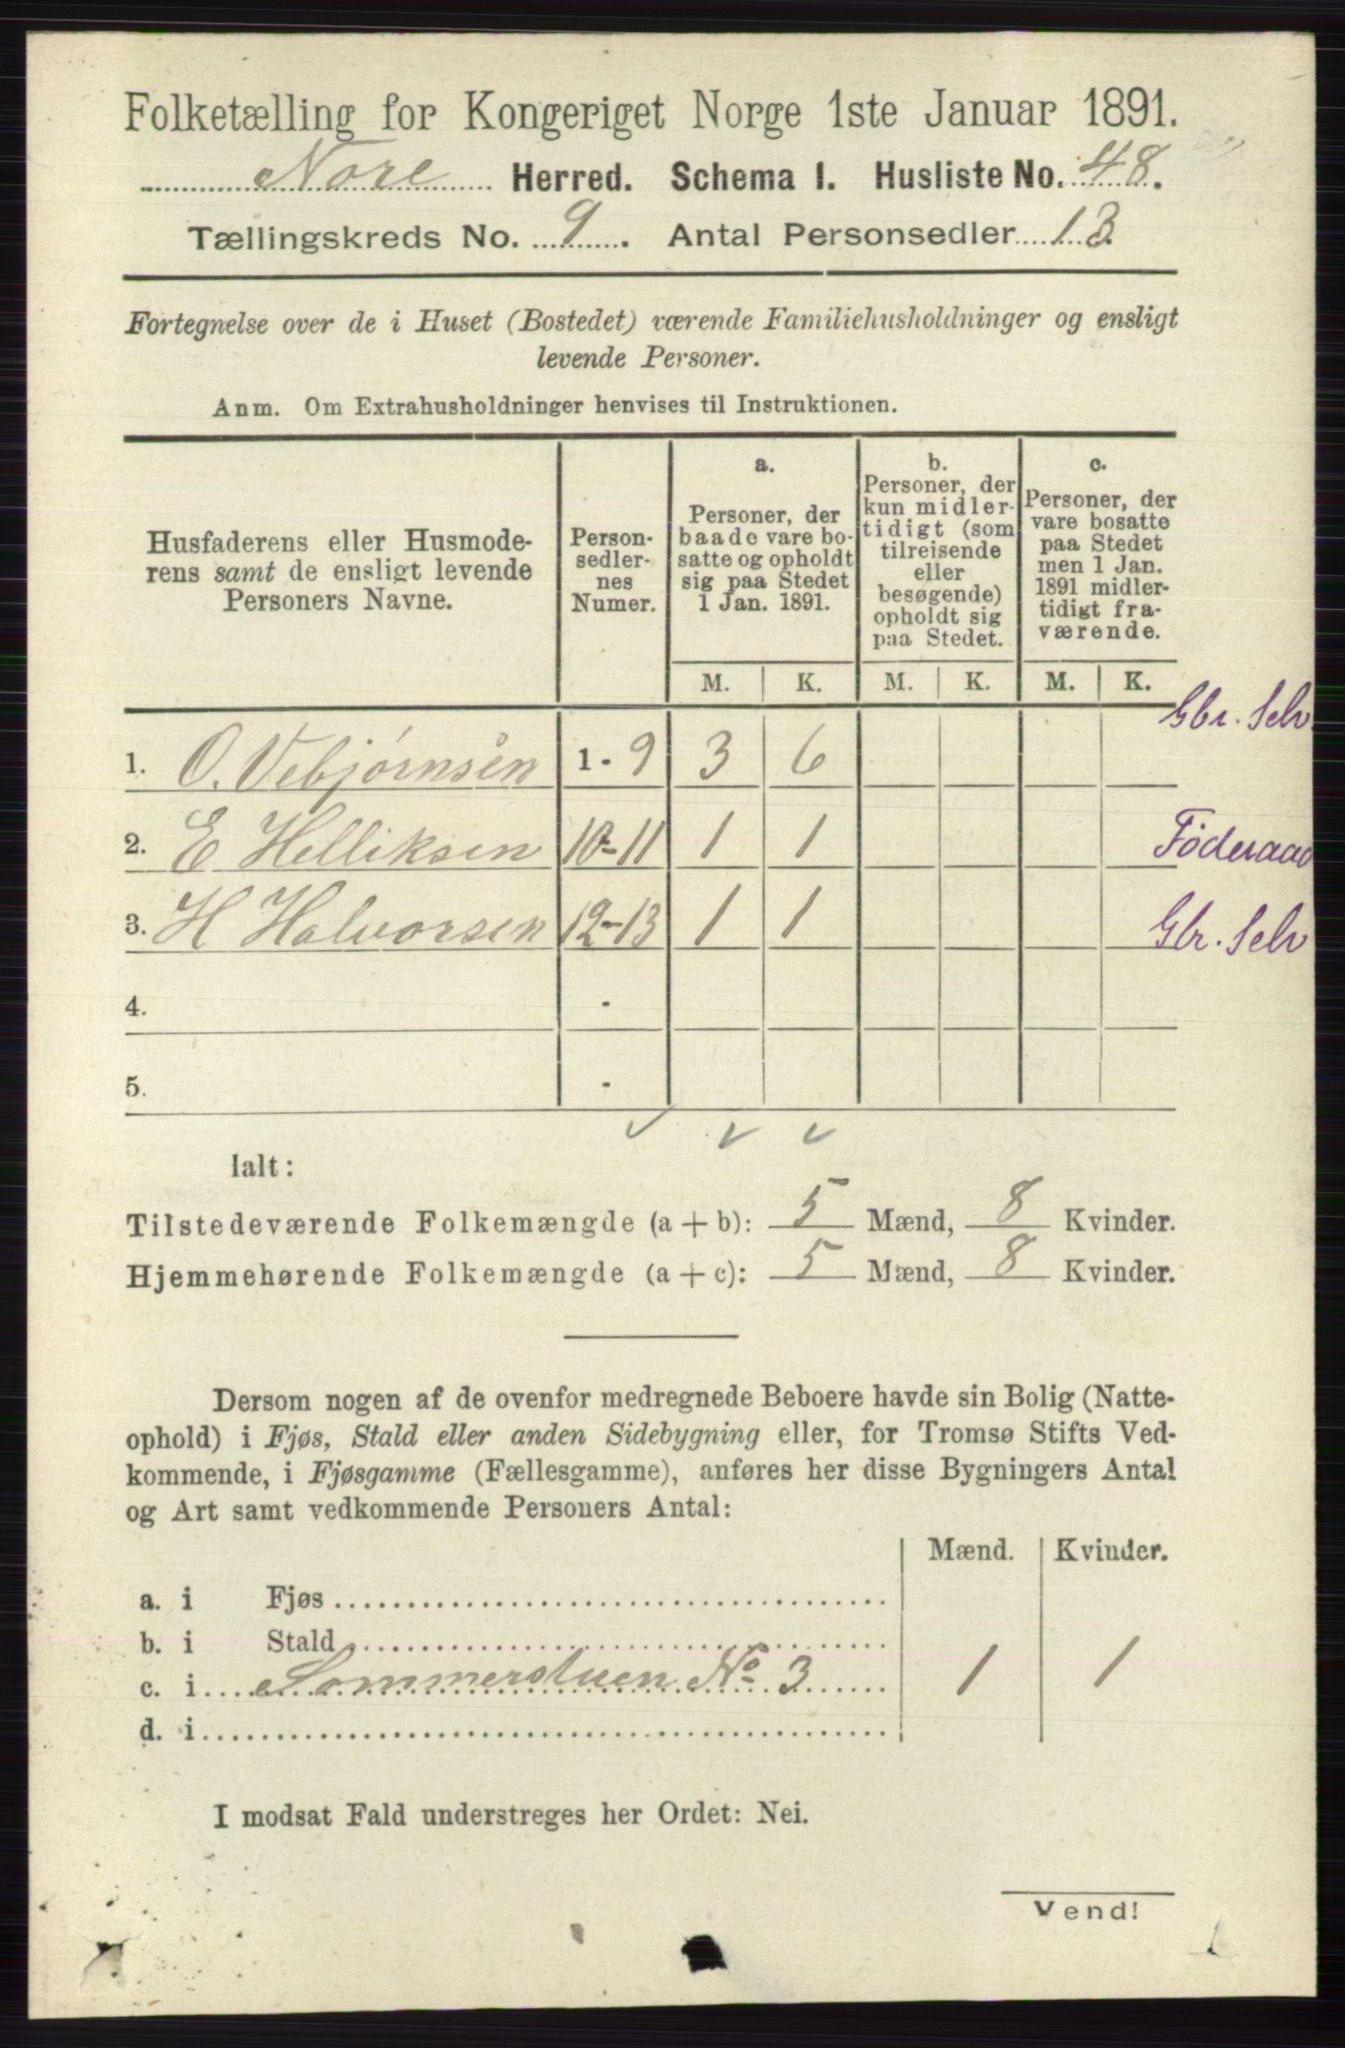 Folketælling for Kongeriget Norge 1ste Januar 1891.
Nore Herred. Schema I. Husliste No. 48.
Tællingskreds No. 9. Antal Personsedler 13
Fortegnelse over de i Huset (Bostedet) værende Familiehusholdninger og ensligt
levende Personer.
Anm. Om Extrahusholdninger henvises til Instruktionen.
Husfaderens eller Husmode-
rens samt de ensligt levende
Personers Navne.
Person-
sedler-
nes
Numer.
a.
Personer, der
baade vare bo-
satte og opholdt
sig paa Stedet
1 Jan. 1891.
b.
Personer, der
kun midler-
tidigt (som
tilreisende
eller
besøgende)
opholdt sig
paa Stedet.
c.
Personer, der
vare bosatte
paa Stedet
men 1 Jan.
1891 midler-
tidigt fra-
værende.
M. K. M. K. M. K.
1. O. Vebjørnsen 1 - 9 3 6 Gbr. Selv
2. E Helliksen 10-11 1 1 Föderaad
3. H Halvorsen 12-13 1 1 Gbr. Selv
4. -
5. -
Ialt:
Tilstedeværende Folkemængde (a + b): 5 Mænd, 8 Kvinder.
Hjemmehørende Folkemængde (a + c): 5 Mænd, 8 Kvinder.
Dersom nogen af de ovenfor medregnede Beboere havde sin Bolig (Natte-
ophold) i Fjøs, Stald eller anden Sidebygning eller, for Tromsø Stifts Ved-
kommende, i Fjøsgamme (Fællesgamme), anføres her disse Bygningers Antal
og Art samt vedkommende Personers Antal:
Mænd. Kvinder.
a. i Fjøs
b. i Stald
c. i Sommerstuen No 3 1 1
d. i
I modsat Fald understreges her Ordet: Nei.
Vend!